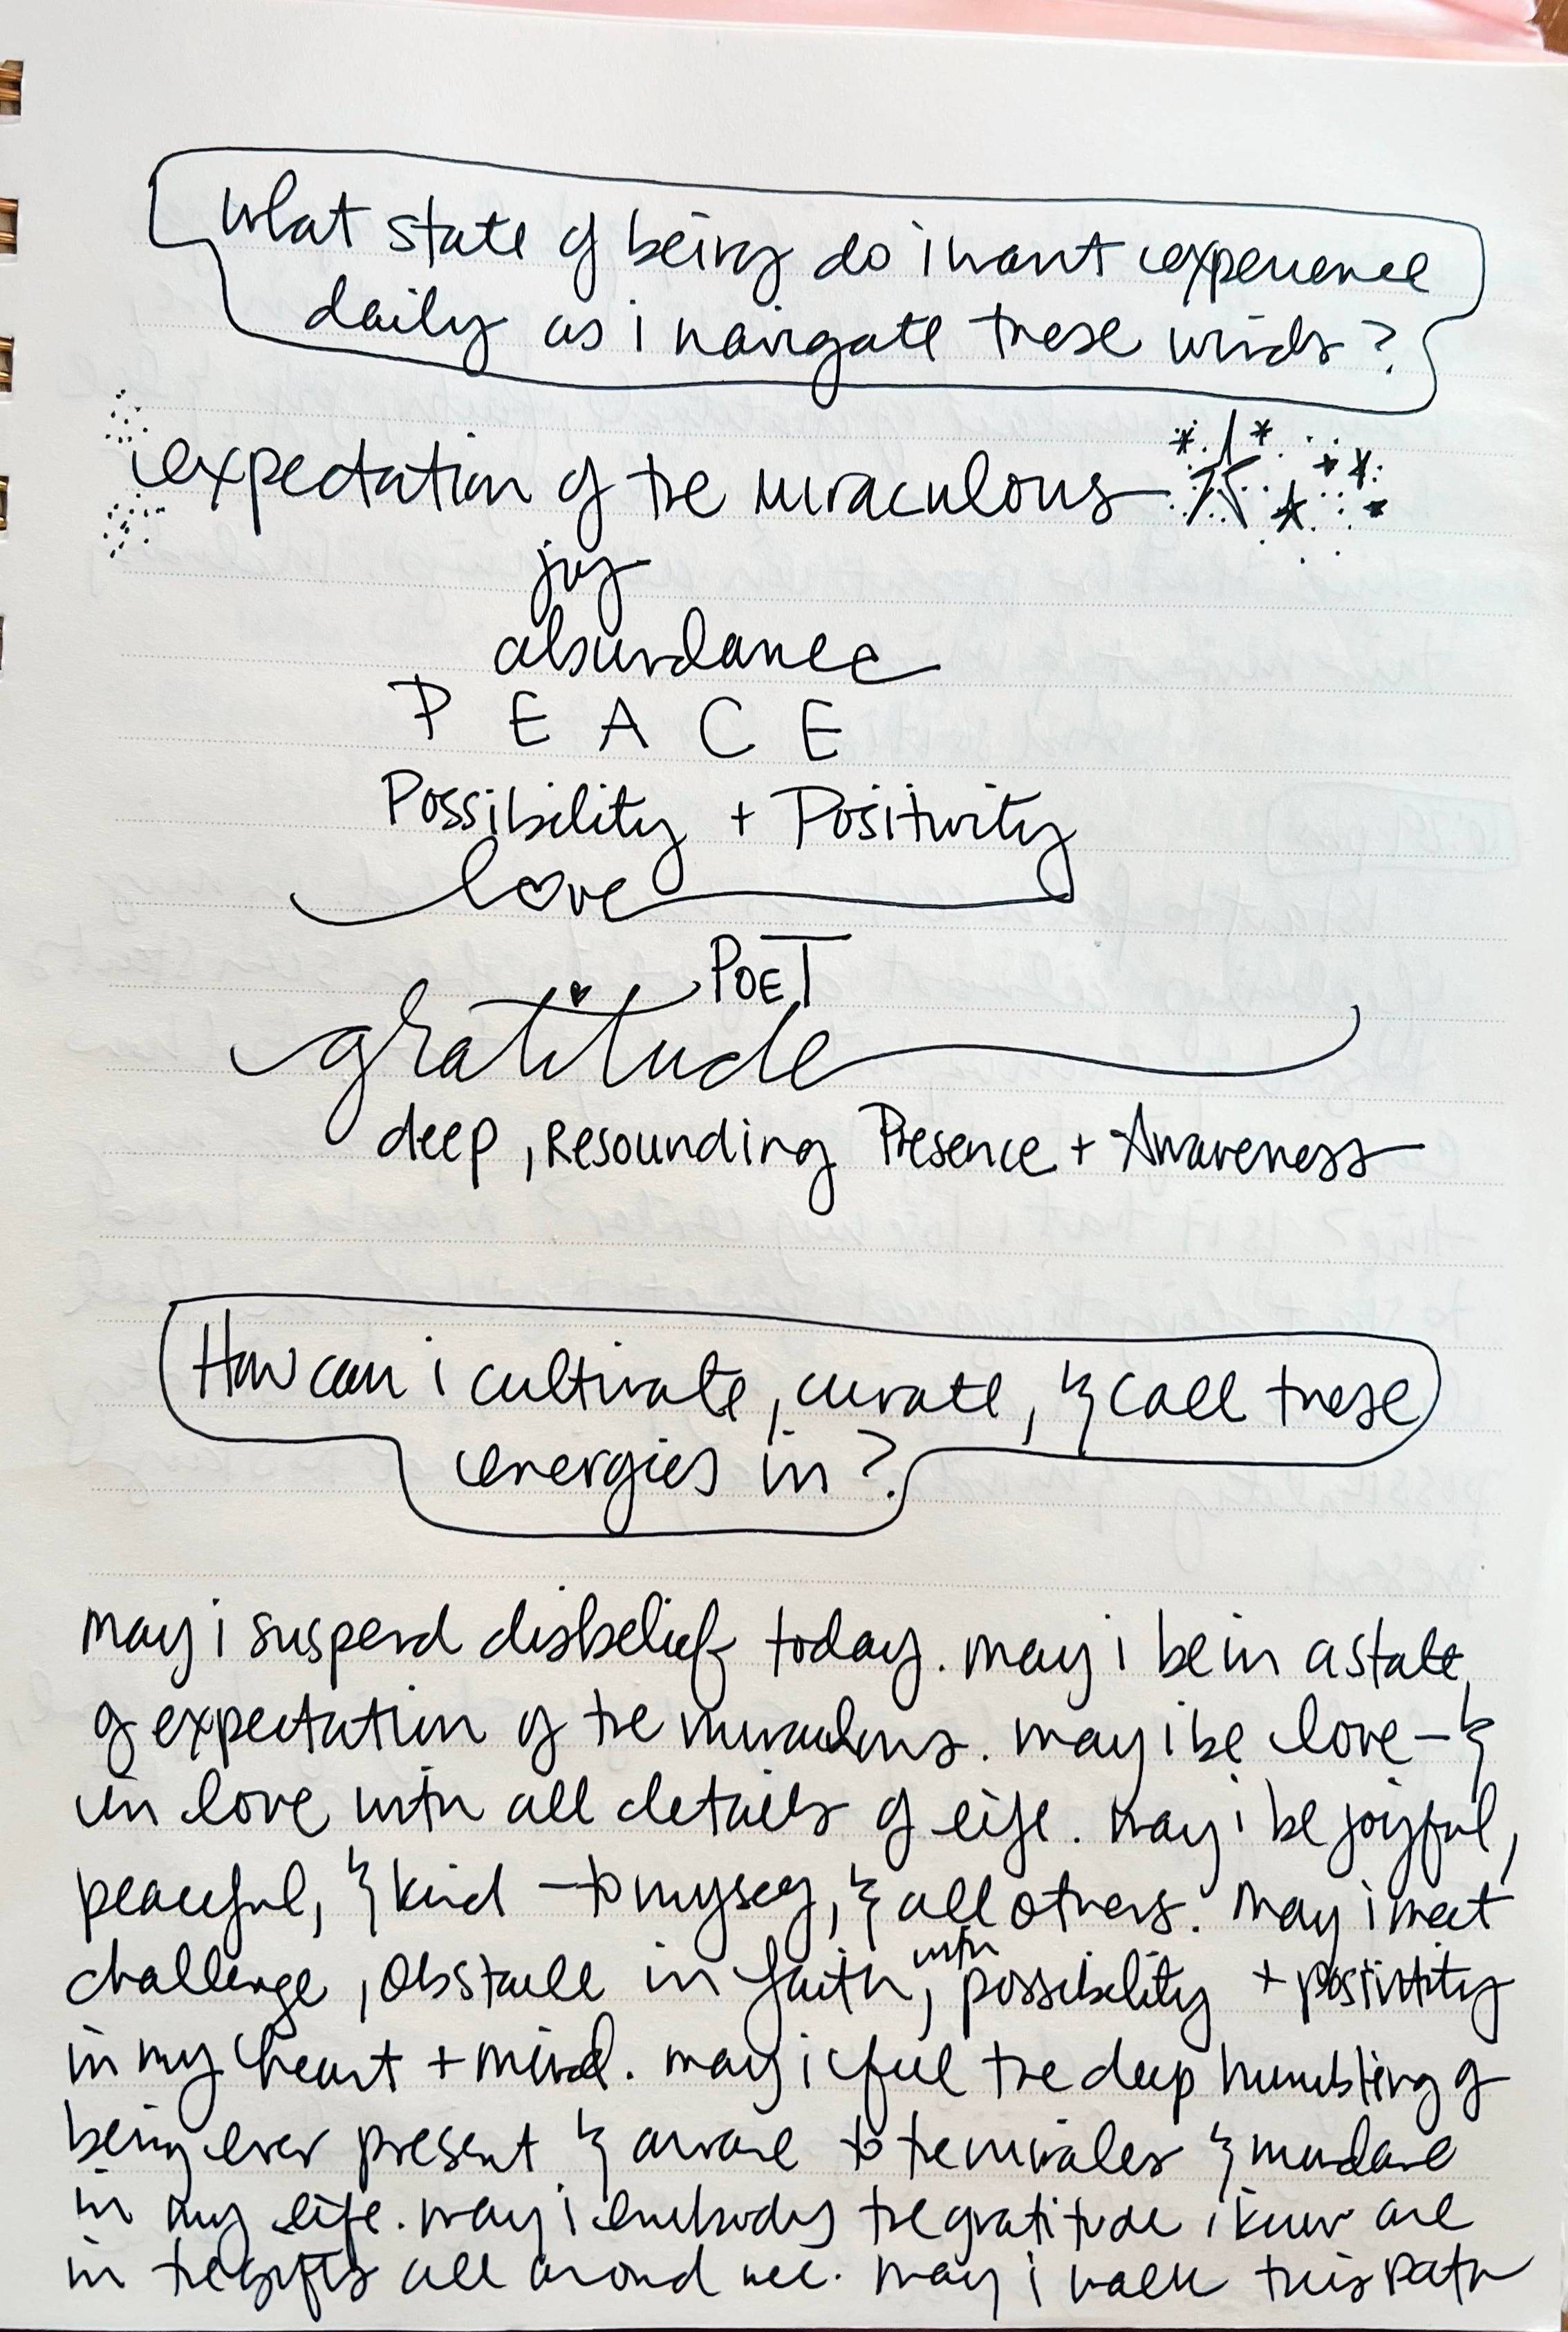 what state of being do i want experience
daily as i navigate these winds?
expectation of the miraculous
joy
abundance
PEACE
Possibility + Positivity
love
POET
gratitude
deep, Resounding Presence + Awareness
How can i cultivate, curate, & call these
energies in?
may i suspend disbelief today. may i be in a state
of expectation of the miraculous. may i be love - &
in love with all details of life. may i be joyful,
peaceful, & kind - to myself, & all others. may i meet
challenge, obstacle in faith, with possibility + positivity
in my heart + mind. may i feel the deep humbling of
being ever present & aware to the miracles & mundane
in my life. may i embody the gratitude i know are
in the gifts all around me. may i walk this path